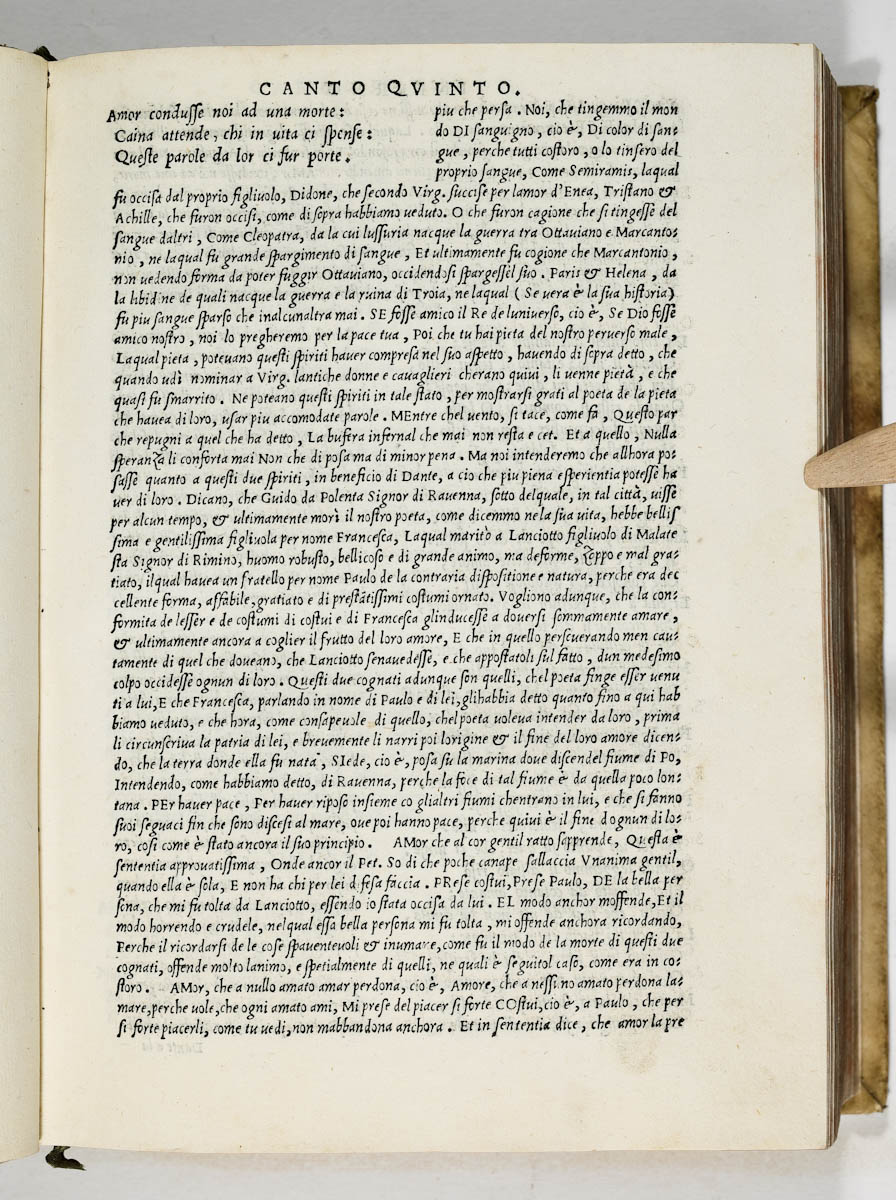 CANTO QVINTO.
Amor condusse noi ad una morte:
Caina attende, chi in uita ci spense:
Queste parole da lor ci fur porte.
piu che persa. Noi, che tingemmo il mon
do DI sanguigno, cio è, Di color di san-
gue, perche tutti costoro, o lo tinsero del
proprio sangue, Come Semiramis, laqual
fu occisa dal proprio figliuolo, Didone, che secondo Virg. succise per lamor d'Enea, Tristano &
Achille, che furon occisi, come di sopra habbiamo ueduto. O che furon cagione che si tingesse del
sangue daltri, Come Cleopatra, da la cui lussuria nacque la guerra tra Ottauiano e Marcanto-
nio, ne laqual fu grande spargimento di sangue, Et ultimamente fu cogione che Marcantonio,
non uedendo forma da poter fuggir Ottauiano, occidendosi spargessel suo. Paris & Helena, da
la libidine de quali nacque la guerra e la ruina di Troia, ne laqual (Se uera è la sua historia)
fu piu sangue sparso che inalcunaltra mai. SE fosse amico il Re de luniuerso, cio è, Se Dio fosse
amico nostro, noi lo pregheremo per la pace tua, Poi che tu hai pieta del nostro peruerso male,
Laqual pieta, poteuano questi spiriti hauer compresa nel suo aspetto, hauendo di sopra detto, che
quando udì nominar a Virg. lantiche donne e cauaglieri cherano quiui, li uenne pietà, e che
quasi fu smarrito. Ne poteano questi spiriti in tale stato, per mostrarsi grati al poeta de la pieta
che hauea di loro, usar piu accomodate parole. MEntre chel uento, si tace, come fa, Questo par
che repugni a quel che ha detto, La bufera infernal che mai non resta e cet. Et a quello, Nulla
speranza li conforta mai Non che di posa ma di minor pena. Ma noi intenderemo che allhora po-
sasse quanto a questi due spiriti, in beneficio di Dante, a cio che piu piena esperientia potesse ha
uer di loro. Dicano, che Guido da Polenta Signor di Rauenna, sotto delquale, in tal città, uisse
per alcun tempo, & ultimamente morì il nostro poeta, come dicemmo ne la sua uita, hebbe bellis
sima e gentilissima figliuola per nome Francesca, Laqual maritò a Lanciotto figliuolo di Malate
sta Signor di Rimino, huomo robusto, bellicoso e di grande animo, ma deforme, zoppo e mal gra-
tiato, ilqual hauea un fratello per nome Paulo de la contraria dispositione e natura, perche era dec
cellente forma, affabile, gratiato e di prestātissimi costumi ornato. Vogliono adunque, che la con-
formita de lesser e de costumi di costui e di Francesca glinducesse a douersi sommamente amare,
& ultimamente ancora a coglier il frutto del loro amore, E che in quello perseuerando men cau-
tamente di quel che doueano, che Lanciotto senauedesse, e che appostatoli sul fatto, dun medesimo
colpo occidesse ognun di loro. Questi due cognati adunque son quelli, chel poeta finge esser uenu
ti a lui, E che Francesca, parlando in nome di Paulo e di lei, glihabbia detto quanto fino a qui hab
biamo ueduto, e che hora, come consapeuole di quello, chel poeta uoleua intender da loro, prima
li circunscriua la patria di lei, e breuemente li narri poi lorigine & il fine del loro amore dicen-
do, che la terra donde ella fu nata, SIede, cio è, posa su la marina doue discendel fiume di Po,
Intendendo, come habbiamo detto, di Rauenna, perche la foce di tal fiume è da quella poco lon-
tana. PEr hauer pace, Per hauer riposo insieme co glialtri fiumi chentrano in lui, e che si fanno
suoi seguaci fin che sono discesi al mare, oue poi hanno pace, perche quiui è il fine dognun di lo-
ro, cosi come è stato ancora il suo principio. AMor che al cor gentil ratto sapprende, Questa è
sententia approuatissima, Onde ancor il Pet. So di che poche canape sallaccia Vnanima gentil,
quando ella è sola, E non ha chi per lei difesa faccia. PRese costui, Prese Paulo, DE la bella per
sona, che mi fu tolta da Lanciotto, essendo io stata occisa da lui. EL modo anchor moffende, Et il
modo horrendo e crudele, nelqual essa bella persona mi fu tolta, mi offende anchora ricordando,
Perche il ricordarsi de le cose spauenteuoli & inumane, come fu il modo de la morte di questi due
cognati, offende molto lanimo, e spetialmente di quelli, ne quali è seguitol caso, come era in co-
storo. AMor, che a nullo amato amar perdona, cio è, Amore, che a nessuno amato perdona la-
mare, perche uole, che ogni amato ami, Mi prese del piacer si forte COstui, cio è, a Paulo, che per
si forte piacerli, come tu uedi, non mabbandona anchora. Et in sententia dice, che amor la pre